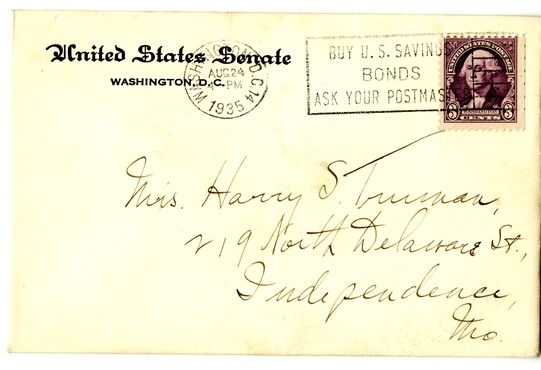 United States Senate
WASHINGTON, D.C.
WASHINGTON, D.C. 14
AUG 24
4 PM
1935
BUY U. S. SAVING
BONDS
ASK YOUR POSTMAS
UNITED STATES POSTAGE
3 WASHINGTON 3
CENTS
Mrs. Harry S. Truman,
219 North Delaware St.,
Independence,
Mo.